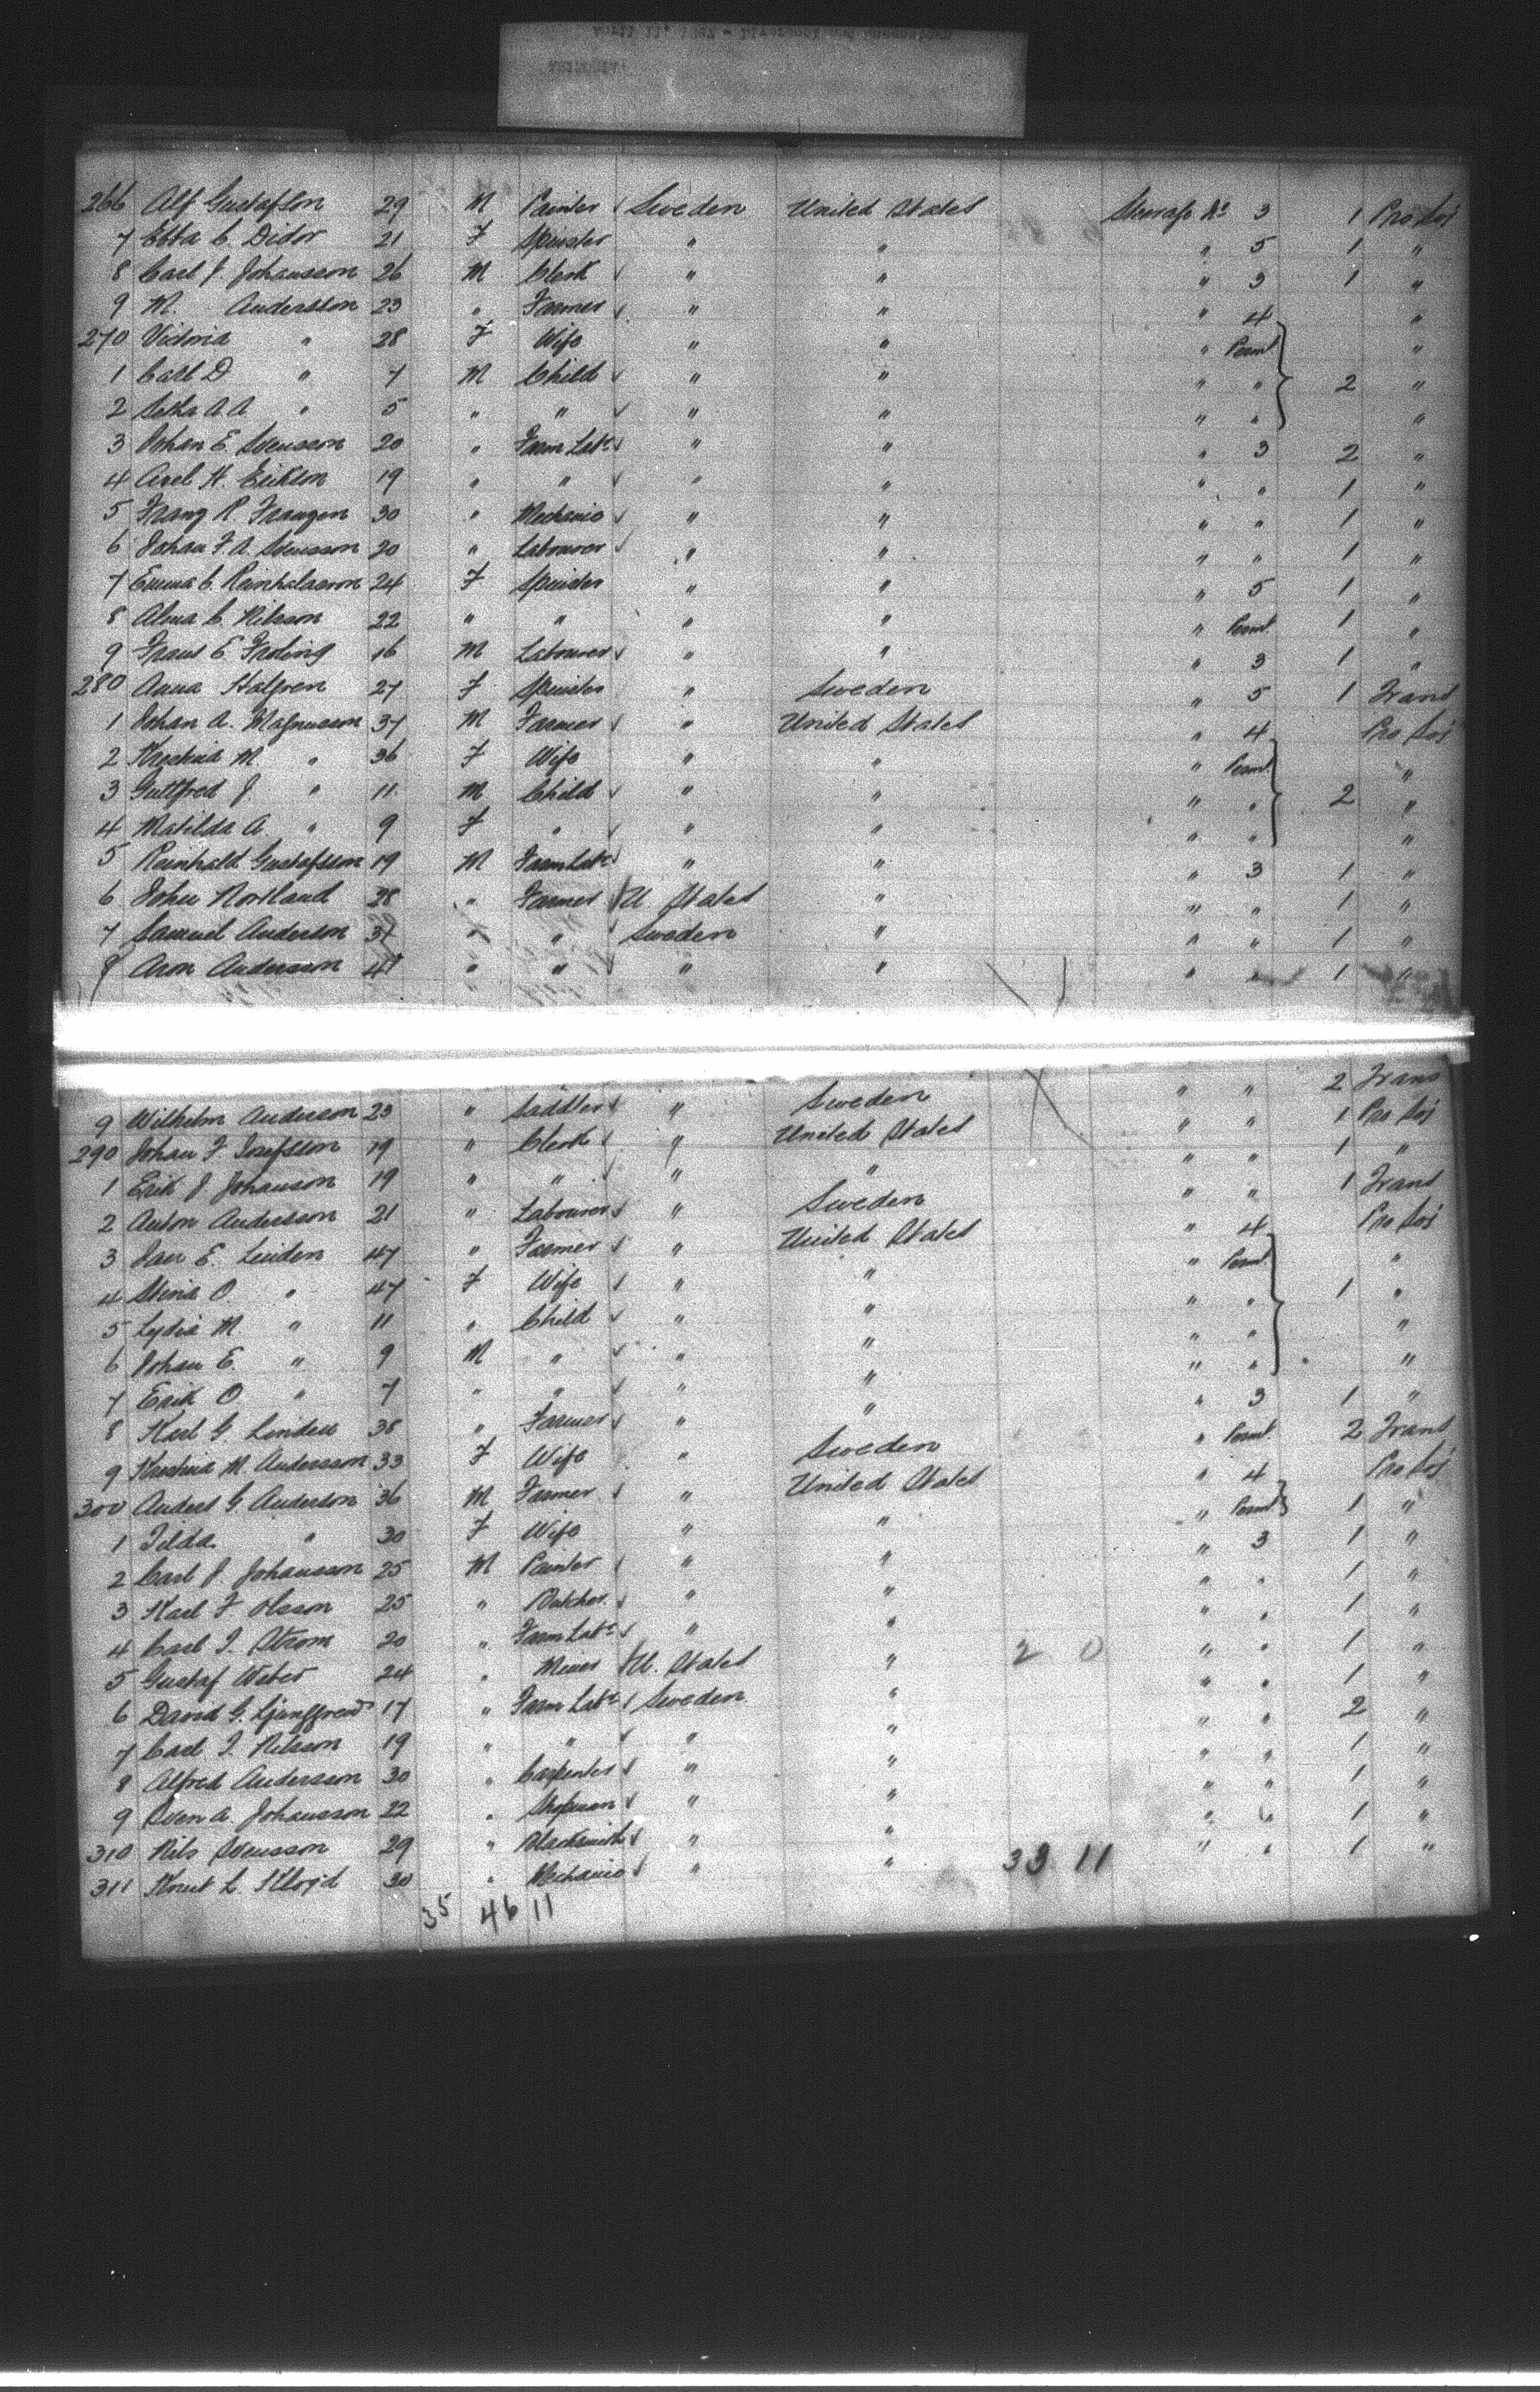 266 Alf Gustafson 29 M Painter Sweden United States Steerage No 3 1 Pro Soj
7 Ebba C. Didor 21 F Spinster " " " 5 1 "
8 Carl J. Johansson 26 M Clerk " " " 3 1 "
9 M. Andersson 23 " Farmer " " " 4 "
270 Victoria " 28 F Wife " " " Perm't "
1 Carl D " 7 M Child " " " " 2 "
2 A. A " 5 " " " " " " "
3 Johan E. Svensson 20 " Farm Labr " " " 3 2 "
4 Axel H. Erikson 19 " " " " " " 1 "
5 Franz R. Franzen 30 " Mechanic " " " " 1 "
6 Johan F. A. Svensson 20 " Labourer " " " " 1 "
7 Emma C. Reinhalasson 24 F Spinster " " " 5 1 "
8 Alma C. Nilsson 22 " " " " " Perm't 1 "
9 Frans E. Froling 16 M Labourer " " " 3 1 "
280 Anna Halgren 27 F Spinster " Sweden " 5 1 Trans
1 Johan A. Magnusson 37 M Farmer " United States " 4 Pro Soj
2 M. " 36 F Wife " " " Perm't "
3 Gottfred J. " 11 M Child " " " " 2 "
4 Matilda A. " 9 F " " " " " "
5 Reinhald Gustafsson 19 M Farm Labr " " " 3 1 "
6 John Norland 28 " Farmer U. States " " " 1 "
7 Samuel Anderson 37 " " Sweden " " " 1 "
8 Aron Andersson 41 " " " " " " 1 "
9 Wilhelm Anderson 23 " Saddler " Sweden " " 2 Trans
290 Johan F. Josefsson 19 " Clerk " United States " " 1 Pro Soj
1 Erik J Johanson 19 " " " " " " 1 "
2 Anton Andersson 21 " Labourer " Sweden " " 1 Trans
3 Jan E. Linden 47 " Farmer " United States " 4 Pro Soj
4 Stina O. " 47 F Wife " " " Perm't "
5 Lydia M. " 11 " Child " " " " 1 "
6 Johan E. " 9 M " " " " " "
7 Erik O " 7 " " " " " " "
8 Karl G. Lindell 38 " Farmer " " " 3 1 "
9 M. Andersson 33 F Wife " Sweden " Perm't 2 Trans
300 Anders G. Anderson 36 M Farmer " United States " 4 Pro Soj
1 Tilda " 30 F Wife " " " Perm't 1 "
2 Carl J. Johansson 25 M Painter " " " 3 1 "
3 Karl F Olsson 25 " Butcher " " " " 1 "
4 Carl I. Strom 20 " Farm Labr " " " " 1 "
5 Gustaf Weber 24 " Miner U. States " 2 0 " " 1 "
6 David G. 17 " Farm Labr Sweden " " " 1 "
7 Carl I. Nilsson 19 " " " " " " 2 "
8 Alfred Andersson 30 " Carpenter " " " " 1 "
9 Sven A. Johansson 22 " Shopman " " " " 1 "
310 Nils Svensson 29 " Blacksmith " " " " 1 "
311 Knut L. 30 " Mechanic " " 33 11 " " 1 "
35 46 11